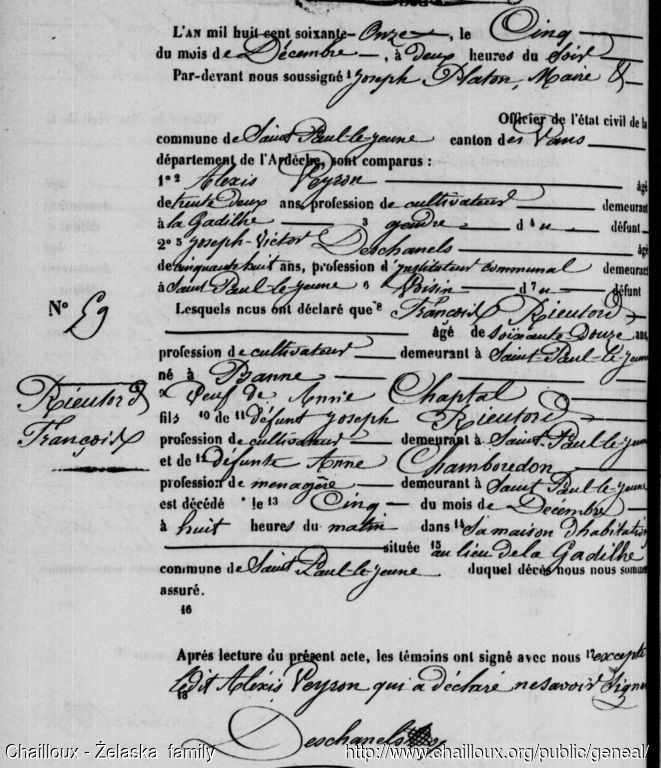 L'AN mil huit cent soixante-Onze, le Cinq
du mois de Décembre, à deux heures du Soir
Par-devant nous soussigné 1 Joseph Platon, Maire &
Officier de l'état civil de la
commune de Saint Paul-le-jeune canton des Vans
département de l'Ardèche, sont comparus :
1º 2 Alexis Peyron âgé
de trente deux ans, profession de cultivateur demeurant
à la Gadilhe 3 gendre d 4 u défunt
2º 5 Joseph-Victor Deschanels âgé
de cinquante huit ans, profession d'instituteur communal demeurant
à Saint Paul-le-jeune 6 Voisin d 7 u défunt
Lesquels nous ont déclaré que 8 François Rieutord
âgé de soixante-douze ans,
profession de cultivateur demeurant à Saint-Paul-le-jeune
né à Banne
9 Veuf de Annie Chaptal
fils 10 de 11 défunt Joseph Rieutord
profession de cultivateur demeurant à Saint-Paul-le-jeune
et de 12 défunte Anne Chamboredon
profession de menagère demeurant à Saint Paul-le-jeune
est décédé le 13 Cinq du mois de Decembre
à huit heures du matin dans 14 sa maison d'habitation
située 15 au lieu de la Gadilhe
commune de Saint Paul-le-jeune duquel décès nous nous sommes
assuré.
16
Après lecture du présent acte, les témoins ont signé avec nous 17 excepté
ledit Alexis Peyron qui a déclaré ne savoir Signer
18
Deschanels
Nº 59
Rieutord
François
Chailloux - Želaska family
http://www.chailloux.org/public/geneal/